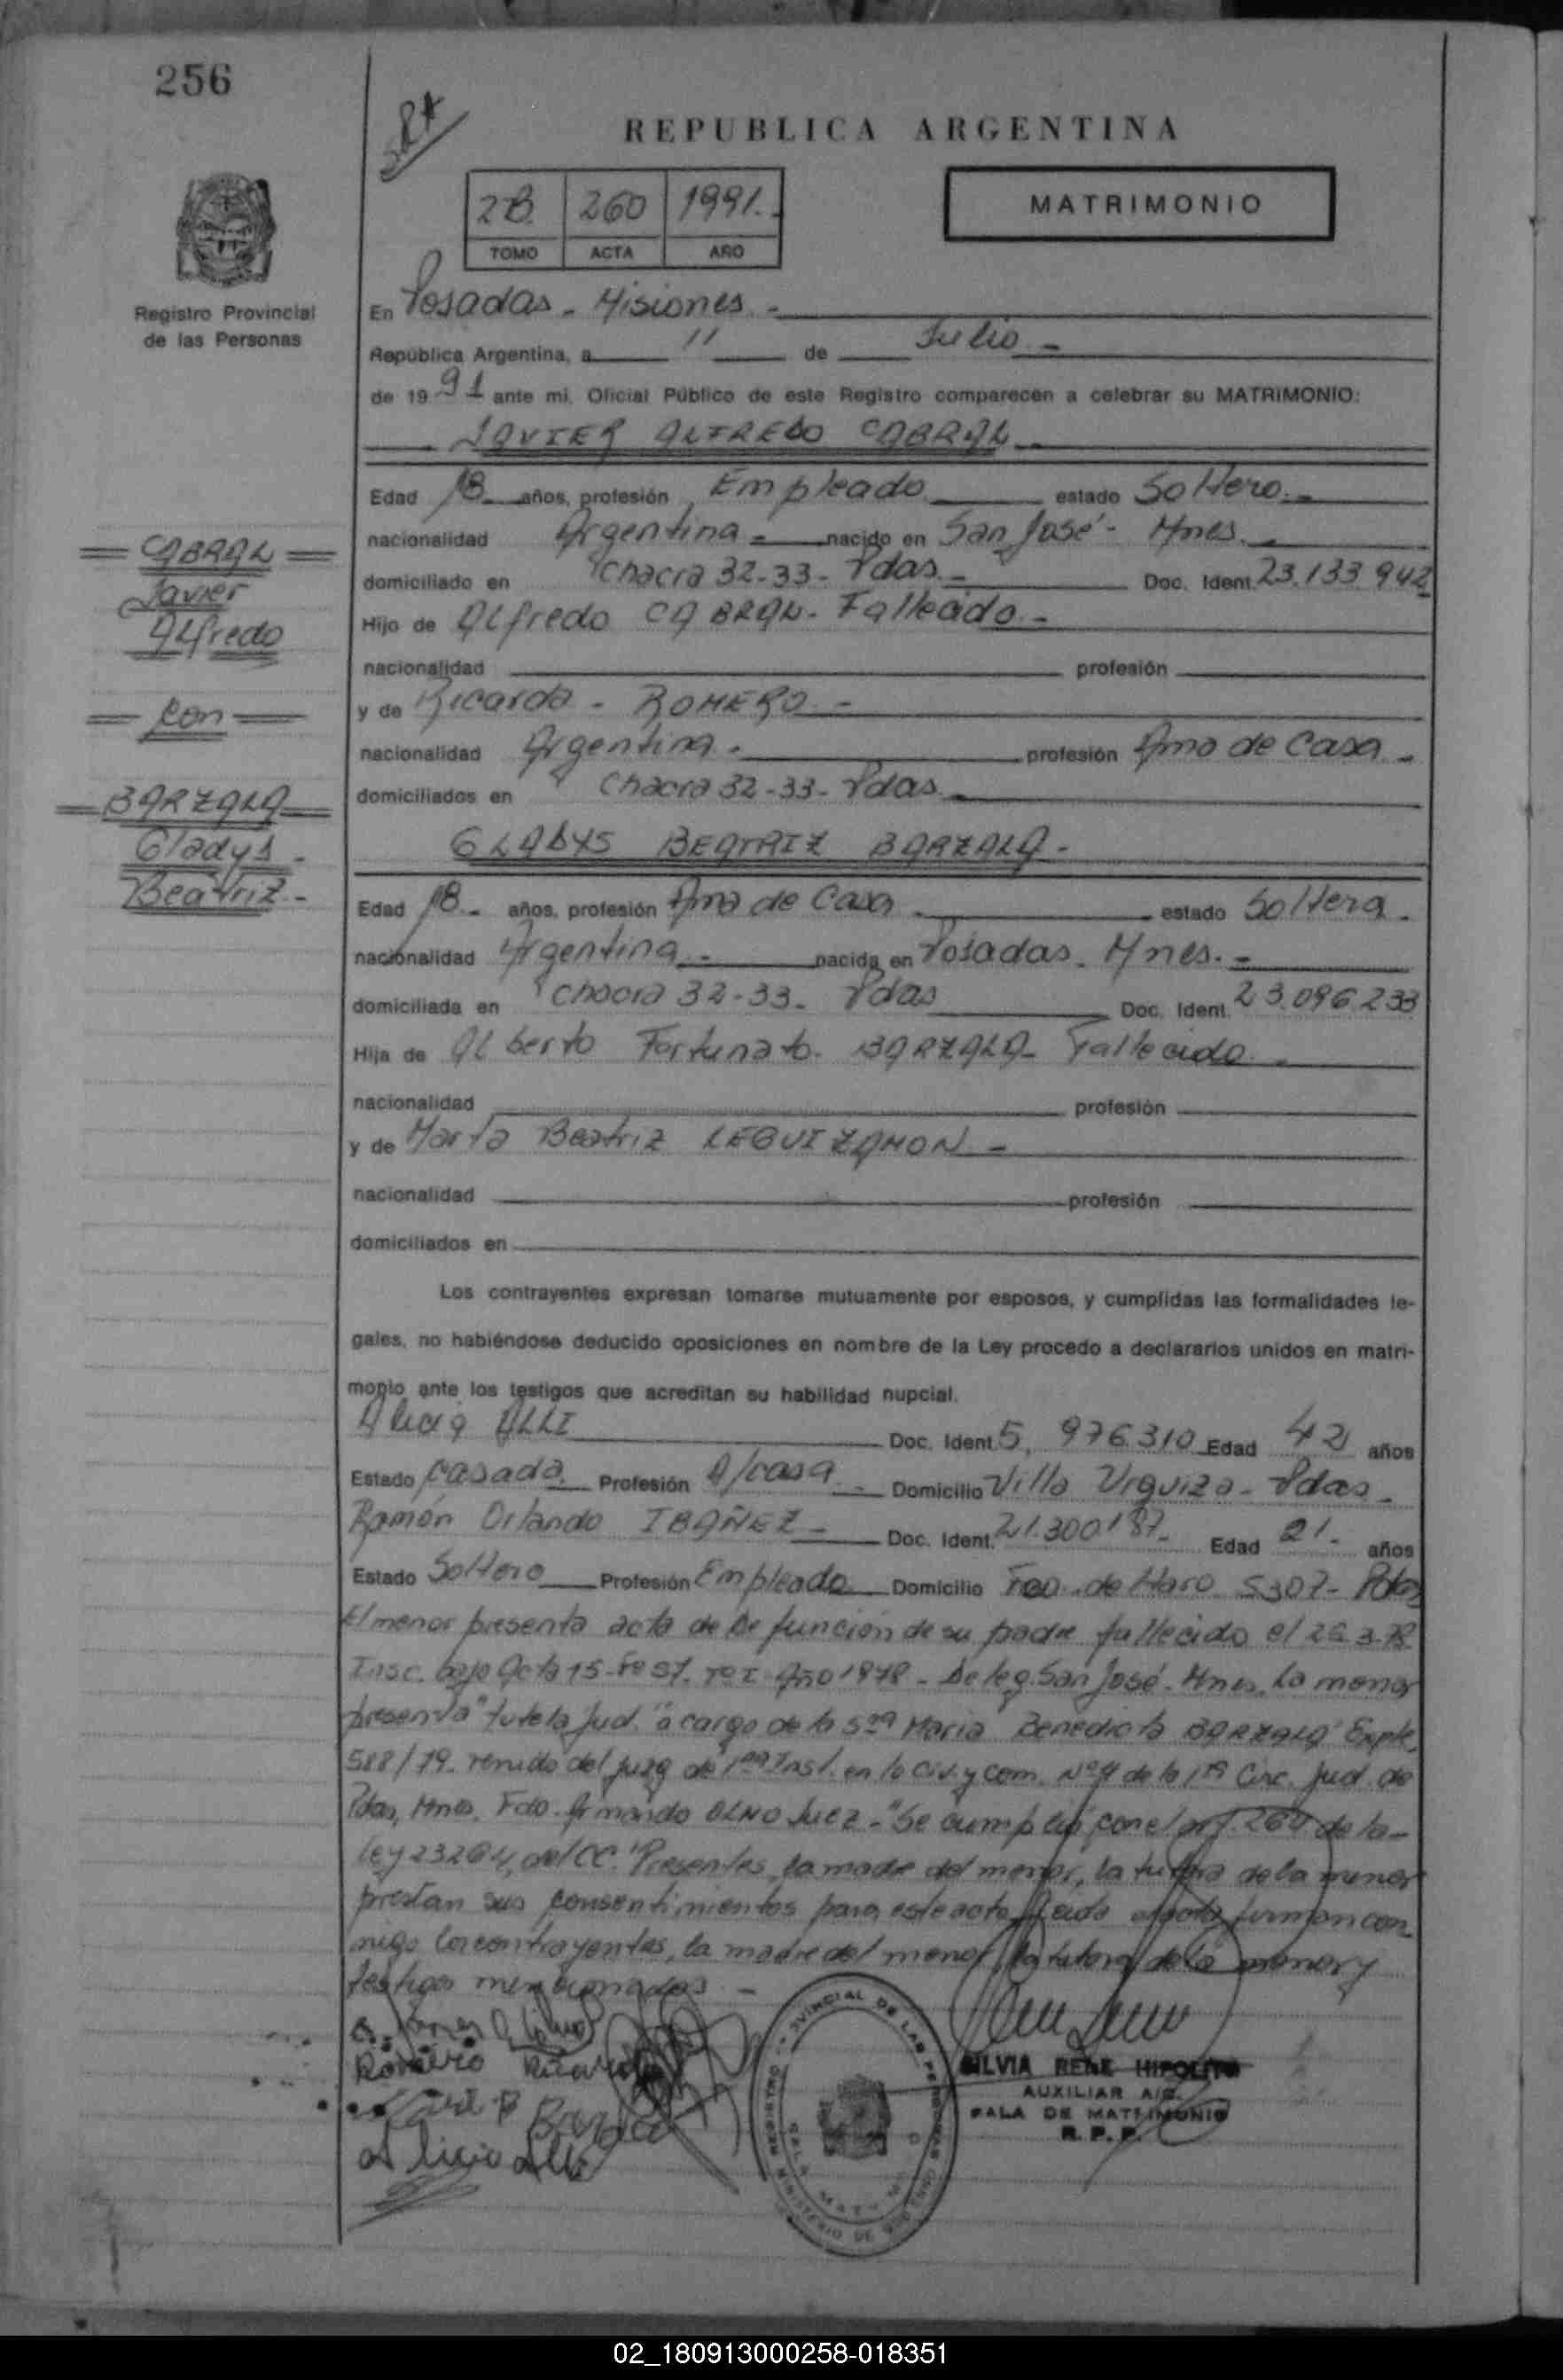 256
REPUBLICA ARGENTINA
2B. 260 1991.
TOMO ACTA AÑO
MATRIMONIO
Registro Provincial
de las Personas
En Posadas - Misiones -
República Argentina, a 11 de Julio -
de 19 91 ante mi, Oficial Público de este Registro comparecen a celebrar su MATRIMONIO:
JAVIER ALFREDO CABRAL
Edad 18 años, profesión Empleado estado Soltero. -
nacionalidad Argentina - nacido en San José - Mnes. -
domiciliado en Chacra 32-33- Pdas. - Doc. Ident. 23.133.942
Hijo de Alfredo CABRAL - Fallecido -
nacionalidad profesión
y de Ricarda - ROMERO -
nacionalidad Argentina - profesión Ama de Casa -
domiciliados en Chacra 32-33- Pdas. -
CABRAL
Javier
Alfredo
con
BARZALA
Gladys
Beatriz -
GLADYS BEATRIZ BARZALA -
Edad 18 - años, profesión Ama de Casa estado Soltera.
nacionalidad Argentina - nacida en Posadas - Mnes. -
domiciliada en Chacra 32-33- Pdas Doc. Ident. 23.096.233
Hija de Alberto Fortunato - BARZALA - Fallecido.
nacionalidad profesión
y de Marta Beatriz LEGUIZAMON -
nacionalidad profesión
domiciliados en
Los contrayentes expresan tomarse mutuamente por esposos, y cumplidas las formalidades le-
gales, no habiéndose deducido oposiciones en nombre de la Ley procedo a declararlos unidos en matri-
monio ante los testigos que acreditan su habilidad nupcial.
Alicia ALLI Doc. Ident. 5.976310 Edad 42 años
Estado Casada Profesión A/casa Domicilio Villa Urquiza - Pdas -
Ramón Orlando IBAÑEZ - Doc. Ident. 21.300187 - Edad 21 - años
Estado Soltero Profesión Empleado Domicilio Fco. de Haro 5307 - Pdas
El menor presenta acta de Defunción de su padre fallecido el
Insc. bajo Acta 15 - Año 1978 - Deleg. San José - Mnes. La menor
presenta "tutela Jud." a cargo de la Sra Maria Benedicta BARZALA Expte.
588/79 - del Juzg de 1ra Inst. en lo Civ. y Com. Nº4 de la 1ra Circ. Jud. de
Pdas, Mnes. Fdo. Armando Juez - "Se cumplió con el art. 264 de la
ley 23264, del CC. "Presentes, la madre del menor, la tutora de la menor
prestan sus consentimientos para este acto. Leida firman con
migo los contrayentes, la madre del menor, la tutora de la menor y
testigos mencionados. -
Romero Ricarda
Barzala
Alicia Alli
SILVIA RENE HIPOLITO
AUXILIAR
SALA DE MATRIMONIO
R. P. P.
02_180913000258-018351